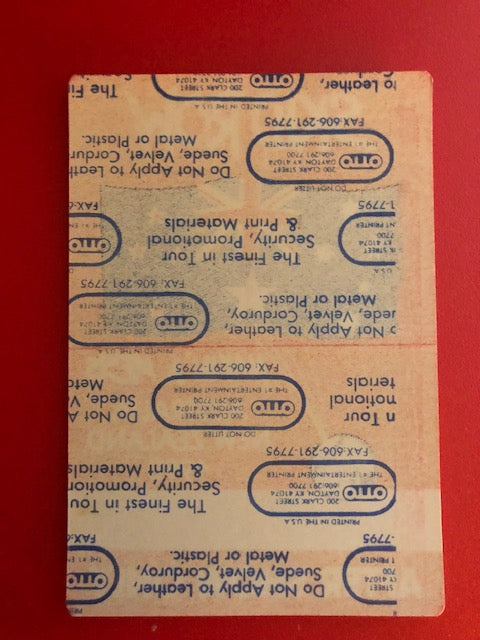 STREET
CY 41074
700
T PRINTER
-7795
Do Not Apply to Leather,
Suede, Velvet, Corduroy,
Metal or Plastic.
OTTO
THE #1 ENT
FAX:6
PRINTED IN THE U.S.A
OTTO
200 CLARK STREET
DAYTON KY 41074
606-291 7700
THE #1 ENTERTAINMENT PRINTER
FAX:606-291-7795
The Finest in Tour
Security, Promotion
& Print Materials
n Tour
notional
terials
DO NOT LITTER
OTTO
200 CLARK STREET
DAYTON KY 41074
606-291 7700
THE #1 ENTERTAINMENT PRINTER
FAX: 606-291-7795
Do Not A
Suede, V
Meta
o Not Apply to Leather,
uede, Velvet, Corduroy,
Metal or Plastic.
PRINTED IN THE U.S.A
OTTO
200 CLARK STREET
DAYTON KY 41074
606-291 7700
THE #1 ENTERTAINMENT PRINTER
FAX: 606-291-7795
U.S.A
RK STREET
KY 41074
7700
NT PRINTER
1-7795
The Finest in Tour
Security, Promotional
& Print Materials
OTTO
THE #1 ENT
FAX:6
DO NOT LITTER
OTTO
200 CLARK STREET
DAYTON KY 41074
606-291 7700
THE #1 ENTERTAINMENT PRINTER
FAX:606-291-7795
Do Not Apply to Leath
Suede, Velvet, Cordur
Metal or Plastic.
to Leather,
PRINTED IN THE U.S.A
OTTO
200 CLARK STREET
DAYTON KY 41074
The Fi